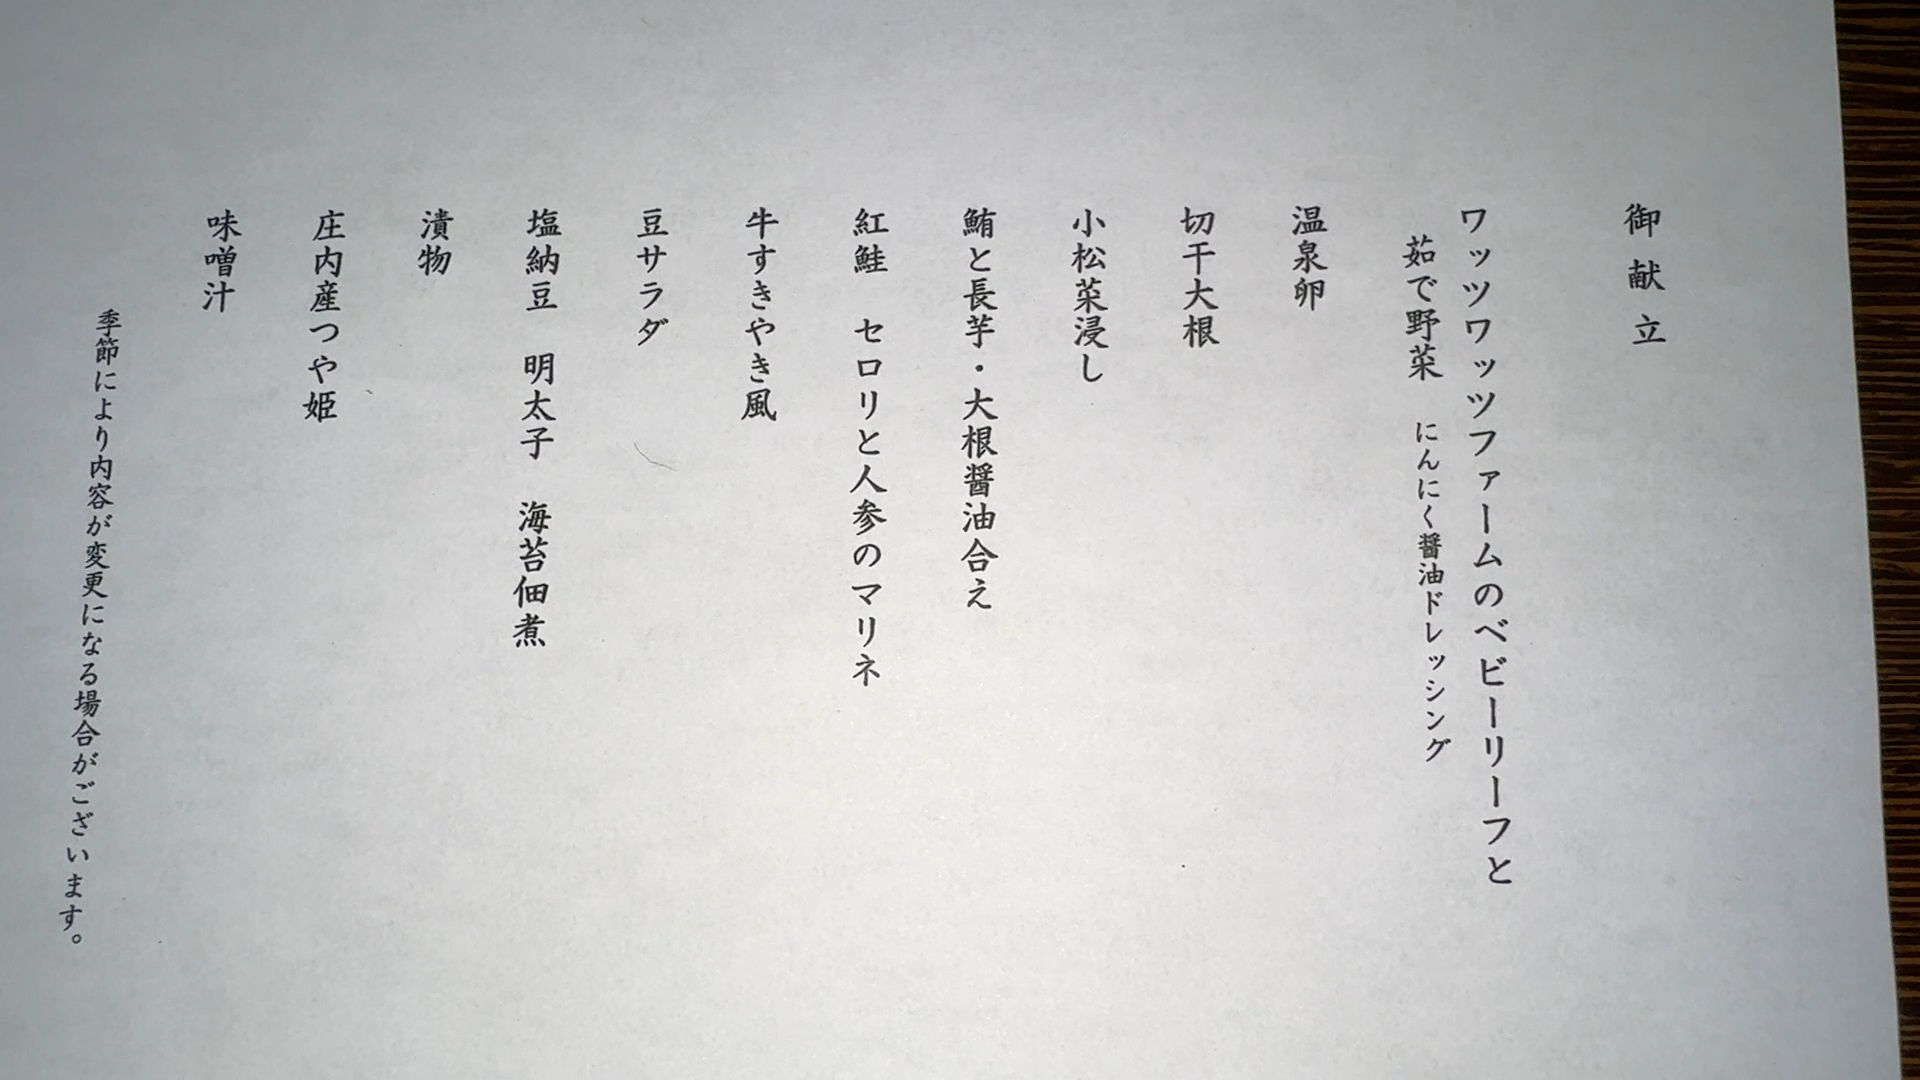 御献立
ワッツワッツファームのベビーリーフと
茹で野菜　にんにく醤油ドレッシング
温泉卵
切干大根
小松菜浸し
鮪と長芋・大根醤油合え
紅鮭　セロリと人参のマリネ
牛すきやき風
豆サラダ
塩納豆　明太子　海苔佃煮
漬物
庄内産つや姫
味噌汁
季節により内容が変更になる場合がございます。